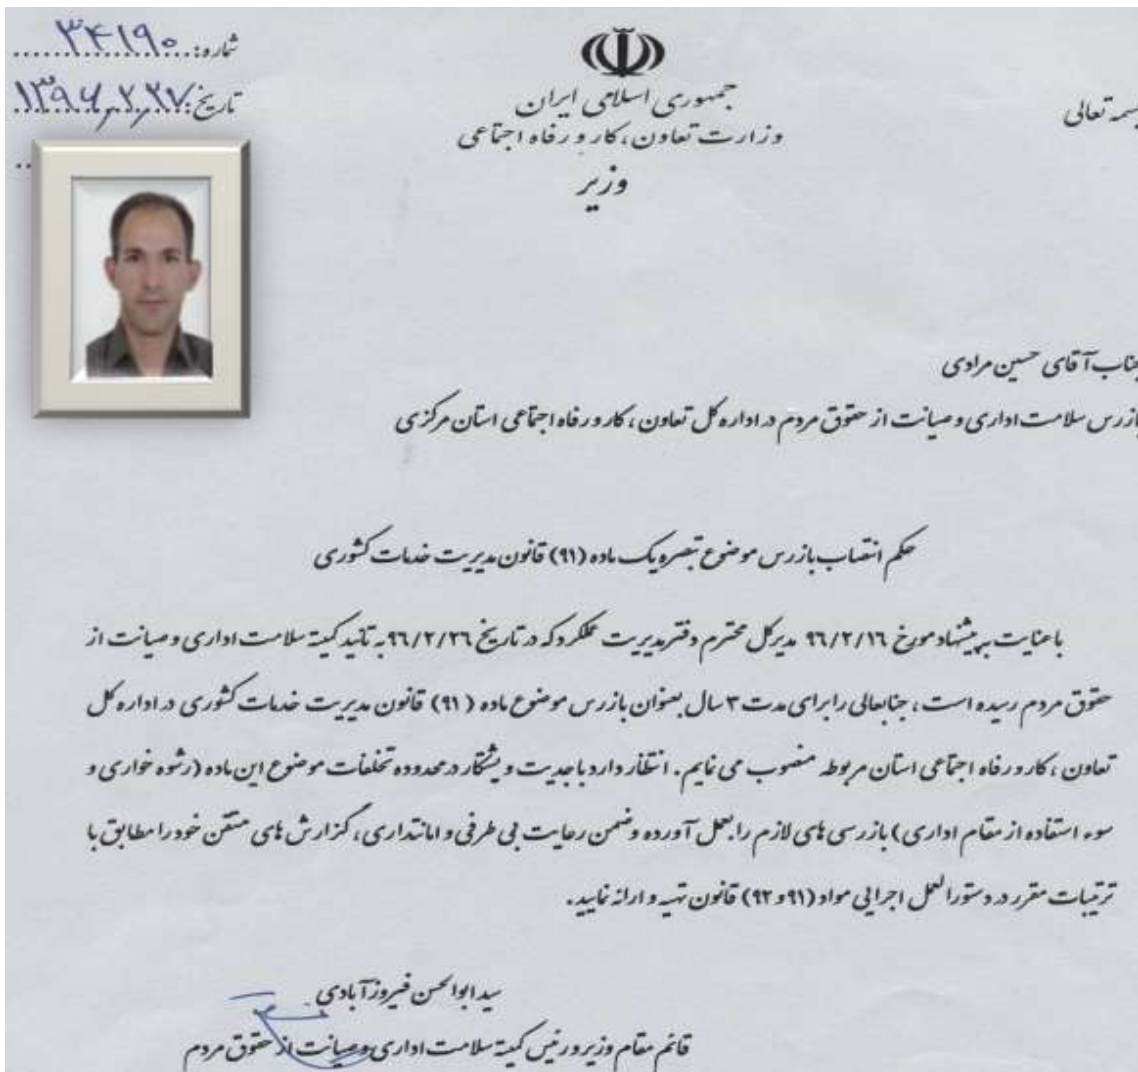 شماره: ۳۴۱۹۰
تاریخ: ۱۳۹۶,۲,۲۷
جمهوری اسلامی ایران
وزارت تعاون، کار و رفاه اجتماعی
وزیر
بسمه تعالی
جناب آقای حسین مرادی
بازرس سلامت اداری و صیانت از حقوق مردم در اداره کل تعاون، کار و رفاه اجتماعی استان مرکزی
حکم انتصاب بازرس موضوع تبصره یک ماده (۹۱) قانون مدیریت خدمات کشوری
با عنایت به پیشنهاد مورخ ۹۶/۲/۱۶ مدیرکل محترم دفتر مدیریت عملکرد که در تاریخ ۹۶/۲/۲۶ به تائید کمیته سلامت اداری و صیانت از
حقوق مردم رسیده است، جنابعالی را برای مدت ۳ سال بعنوان بازرس موضوع ماده (۹۱) قانون مدیریت خدمات کشوری در اداره کل
تعاون، کار و رفاه اجتماعی استان مربوطه منصوب می نمایم. انتظار دارد با جدیت و پشتکار در محدوده تخلفات موضوع این ماده (رشوه خواری و
سوء استفاده از مقام اداری) بازرسی های لازم را بعمل آورده و ضمن رعایت بی طرفی و امانتداری، گزارش های متقن خود را مطابق با
ترتیبات مقرر در دستورالعمل اجرایی مواد (۹۱ و ۹۲) قانون تهیه و ارائه نمایید.
سید ابوالحسن فیروزآبادی
قائم مقام وزیر و رئیس کمیته سلامت اداری و صیانت از حقوق مردم